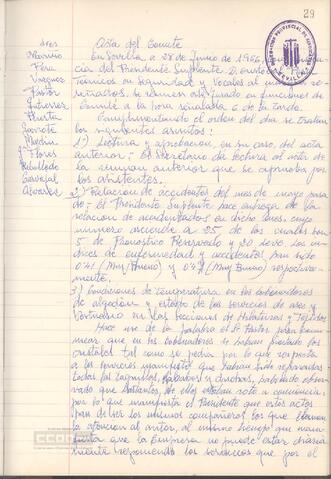 29
Sres
Navarro
Pera
Vazquez
Pastor
Gutierrez
Huerta
Medina
Flores
Rebolledo
Carvajal
Alvarez
Acta del Comité
En Sevilla a 28 de Junio de 1966,
cia del Presidente Suplente D.
Técnicos en Seguridad y Vocales al margen re-
señados. Se reunen en funciones de
Comité a la hora señalada 6 de la tarde.
Cumplimentando el orden del dia se tratan
los siguientes asuntos:
1) Lectura y aprobación, en su caso, del acta
anterior; El Secretario da lectura al acta de
la reunión anterior que es aprobada por
los asistentes.
2) Relación de accidentes del mes de mayo pasa-
do; el Presidente Suplente hace entrega de la
relación de accidentados en dicho mes, cuyo
número asciende a 25 de los cuales son
5 de Pronostico Reservado y 20 leve. Los in-
dices de enfermedad y accidentes han sido
0'41 (Muy Bueno) y 0'43 (Muy Bueno) respectiva-
mente.
3) Condiciones de temperatura en los
de algodón y estado de los servicios de aseo y
vestuario en las Secciones de Hilaturas y Tejidos
Hace uso de la palabra el Sr Pastor para comu-
nicar que en los se habian pintado los
cristales tal como se pedia, por lo que respecta
a los servicios manifiesta que habian sido reparados
todas las lagunas, y duchas, habiendo obser-
vado que de ellos estaba roto a
por lo que manifiesta el Presidente que estos actos
han de ser los mismos compañeros los que llamen
la atención al autor, al mismo tiempo que mani-
fiesta que la Empresa no puede estar diaria-
mente reponiendo los servicios que por el